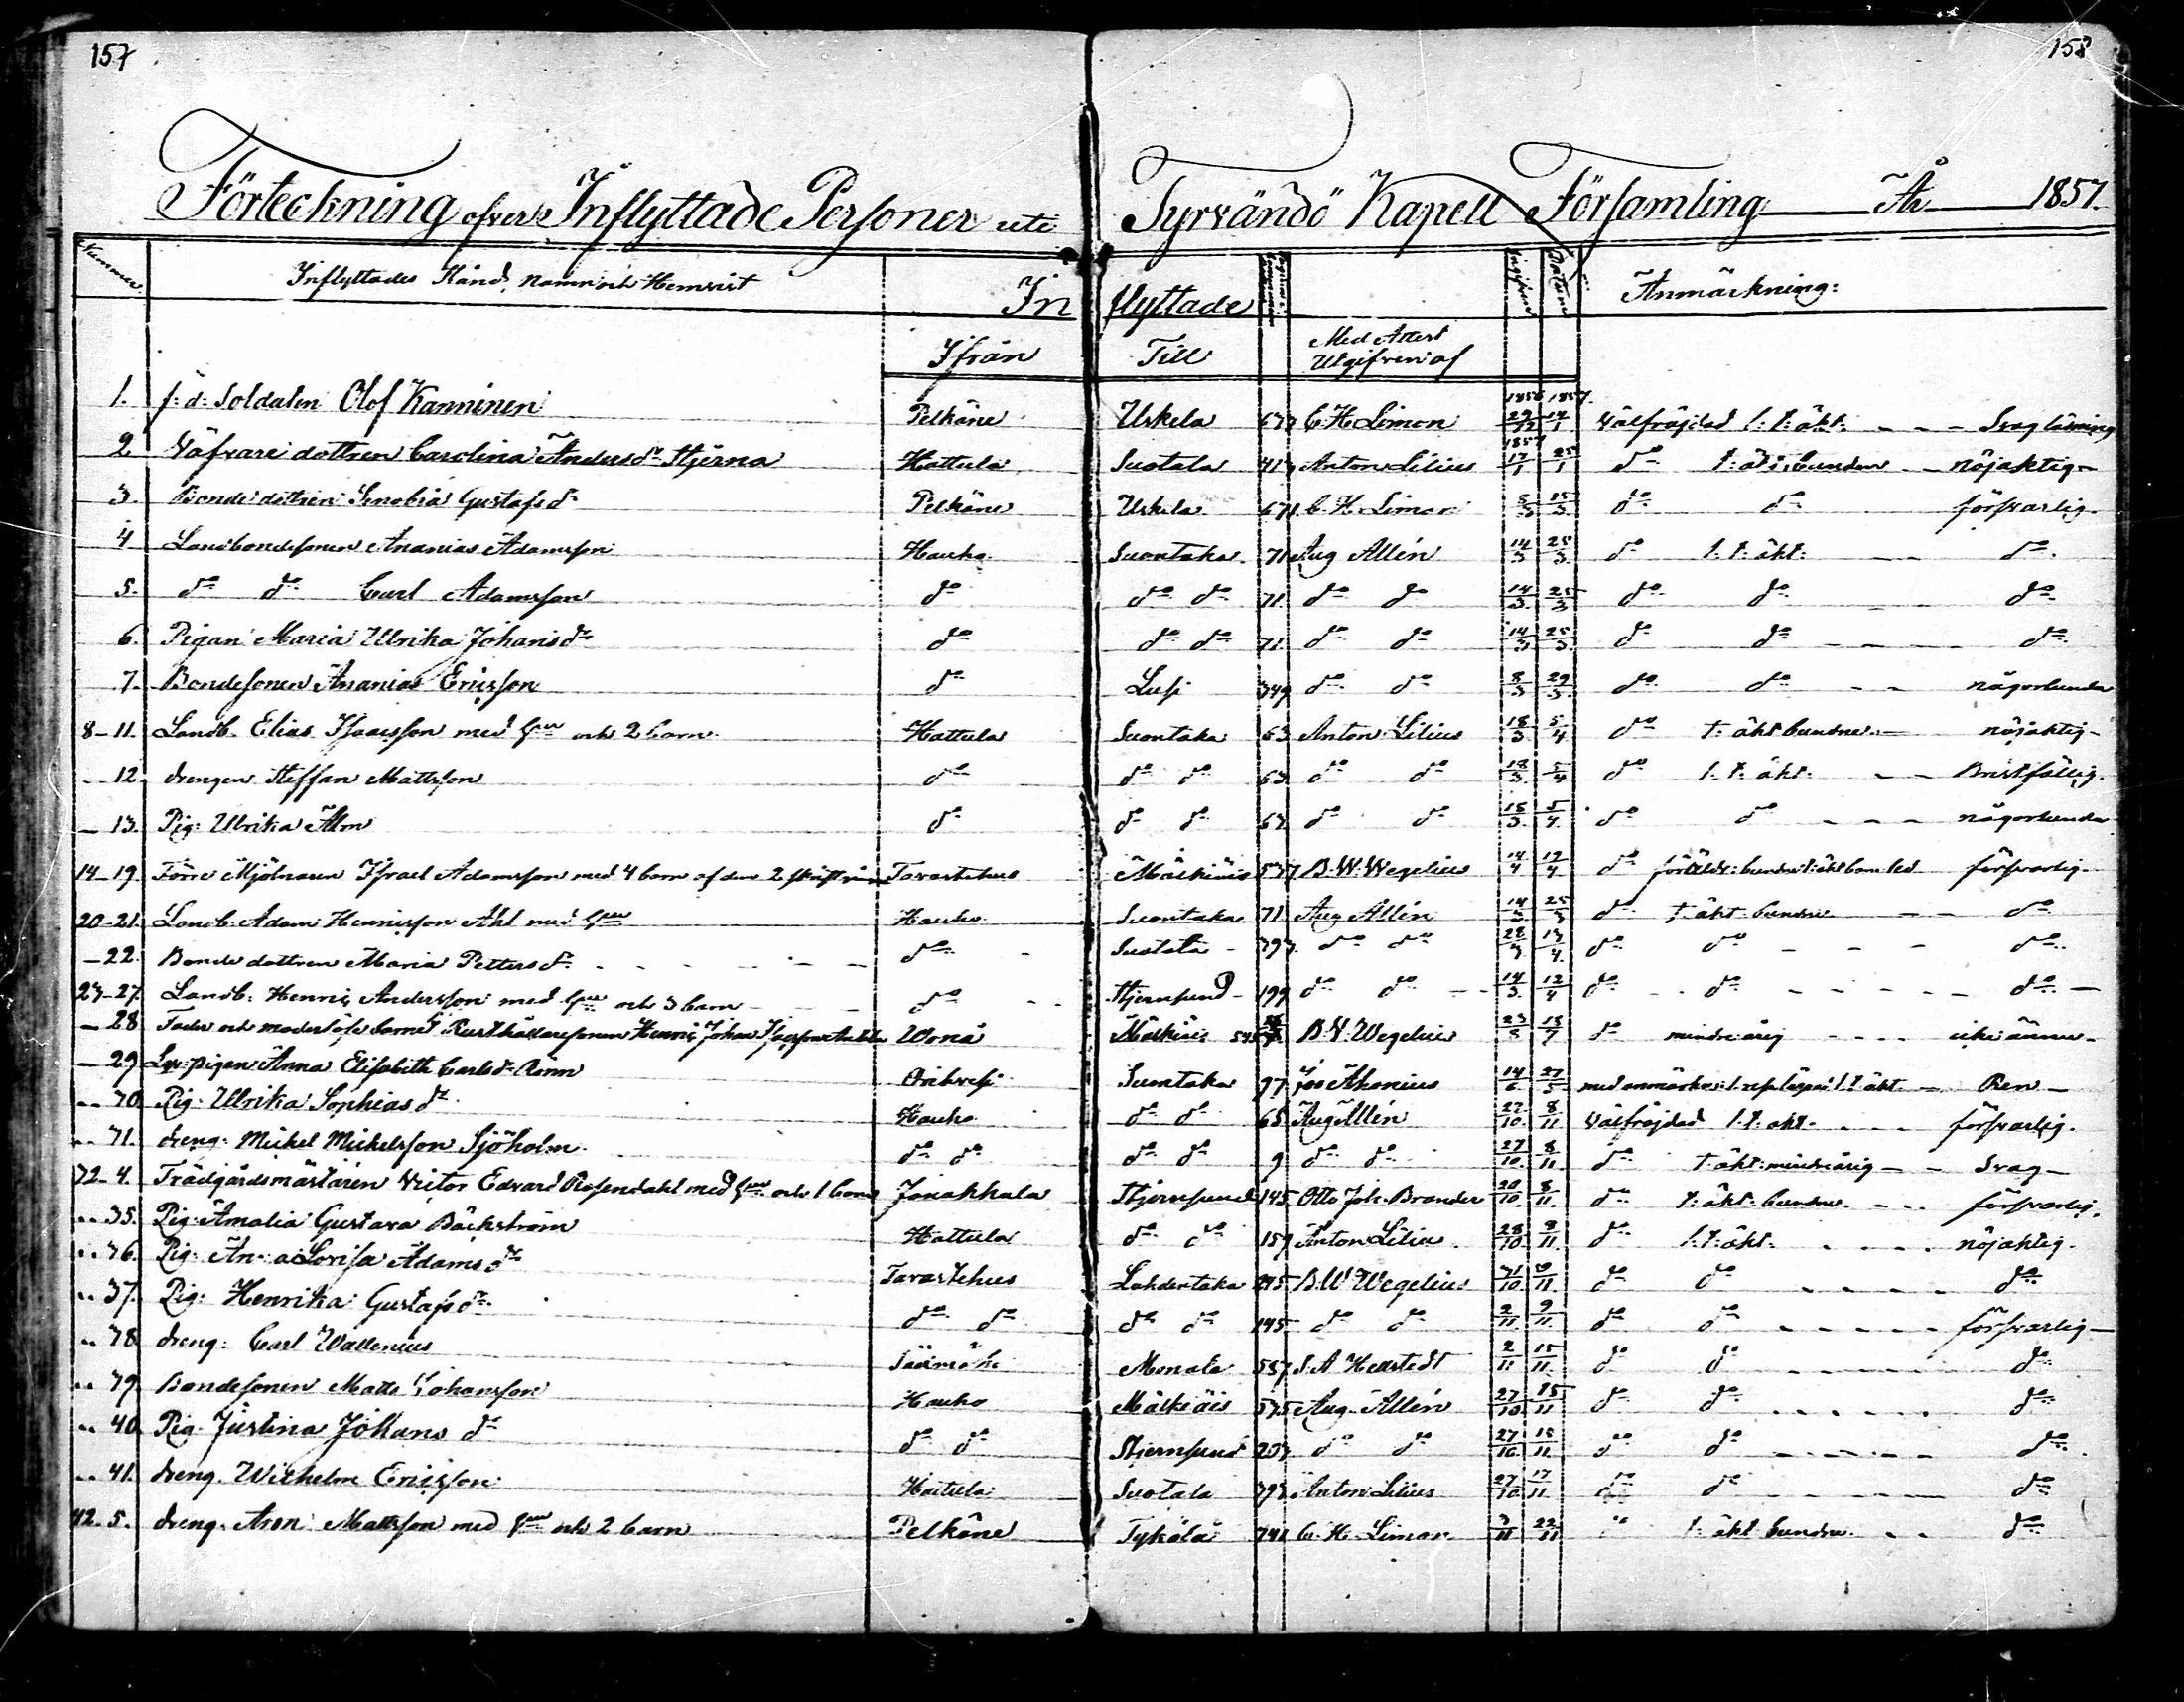 157
158
Förteckning öfver Inflyttade Personer uti Tyrvändö Kapell Församling År 1857.
Nummer Inflyttades Stånd, Namn och Hemvist In flyttade Anmärkning:
Ifrån Till Med Attest Utgifven af
1856 1857.
1. f: d: Soldaten Olof Kanninen Pelkäne Uskela 677 C. H. Limon 29/12 14/1 Välfräjdad l: t: äkt: Svag läsning
1857
2. Väfvare dottren Carolina Andersdr Stjerna Hattula Suotala 417 Anton Lilius 17/1 25/1 do t: äkt: bunden nöjaktig
3. Bonde dottren Senobia Gustafsdr Pelkäne Uskela 671 C. H. Limon 5/3 15/3 do do försvarlig
4 Landbondesonen Ananias Adamsson Hauho Suontaka 71 Aug Allén 14/3 25/3 do l: t: äkt: do
5. do do Carl Adamsson do do do 71. do do 14/3 25/3 do do do
6. Pigan Maria Ulrika Johansdr do do do 71. do do 14/3 25/3 do do do
7. Bondesonen Ananias Ericsson do Lusi 349 do do 8/3 29/3 do do någorlunda
8-11. Landb. Elias Isaacsson med hu och 2 barn Hattula Suontaka 63 Anton Lilius 18/3 5/4 do t: äkt bundne nöjaktig
12. drengen Steffan Mattsson do do do 63. do do 18/3 5/4 do l: t: äkt. Bristfällig.
13. Pig: Ulrika Alm do do do 63. do do 18/3 5/4 do do någorlunda
14-19. Förre Mjölnaren Israel Adamsson med 4 barn af dem 2 Tavastehus Mälkiäis 537 B. W. Wegelius 14/4 19/4 do försvarlig.
20-21. Landb. Adam Henricsson Ahl med hu Hauho Suontaka 71 Aug Allén 14/3 25/3 do t: äkt: bundne do
22. Bonde dottren Maria Pettersdr do Suotala 393. do do 28/3 13/4 do do do
23-27. Landb: Henric Andersson med hu och 3 barn do Stjernsund 199 do do 14/3 12/4 do do do
28. Fader och moderlösa barnet Rusthållaresonen Henric Johan Wonå Mälkiäis B. W. Wegelius do minderårig icke ännu
29 Pigan Anna Elisabeth Carlsdr Rönn Orihvesi Suontaka 97 14/6 27/5 Ren
30 Pig: Ulrika Sophiasdr Hauho do do 65 Aug Allén 27/10 8/11 Välfräjdad l: t: äkt. försvarlig.
31. dreng: Mickel Mickelsson Sjöholm do do do do 9 do do 27/10 8/11 do t: äkt: minderårig Svag
32-4. Trädgårdsmästaren Victor Edvard Rosendahl med hu och 1 barn Janakkala Stjernsund 145 Otto Joh. Brander 20/10 8/11 do t: äkt: bundne försvarlig.
35. Pig: Amalia Gustava Bäckström Hattula do do 159 Anton Lilius 28/10 8/11 do l: t: äkt: nöjaktig.
36. Pig: Anna Lovisa Adamsdr Tavastehus Lahdentaka 295 B. W. Wegelius 31/10 8/11 do do do
37. Pig: Henrika Gustafsdr do do do do 195 do do 2/11 9/11 do do försvarlig
38 dreng: Carl Wallenius Sääxmäki Monala 587 J. A Hedstedt 2/11 15/11 do do do
39 Bondesonen Matts Johansson Hauho Mälkiäis 575 Aug Allén 27/10 15/11 do do do
40. Pig. Justina Johansdr do do Stjernsund 203 do do 27/10 15/11 do do do
41. dreng. Wilhelm Ericsson Hattula Suotala 393 Anton Lilius 27/10 17/11 do do do
42-5. dreng. Aron Mattsson med hu och 2 barn Pelkäne Tykölä 741 C. H. Limon 22/11 do t: äkt bundne do